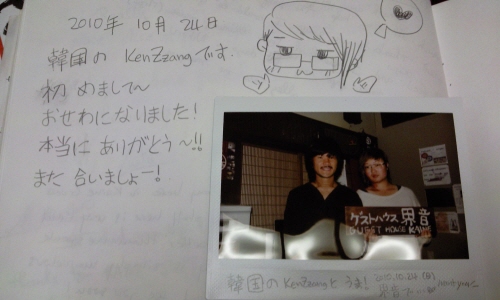 2010年 10月 24日
韓国の KenZzangです.
初めまして〜
おせわになりました!
本当に ありがとう〜!!
また 合いましょー!
ゲストハウス 界音
GUEST HOUSE KAINE
韓国の KenZzangと うま!
2010.10.24 (日)
界音で